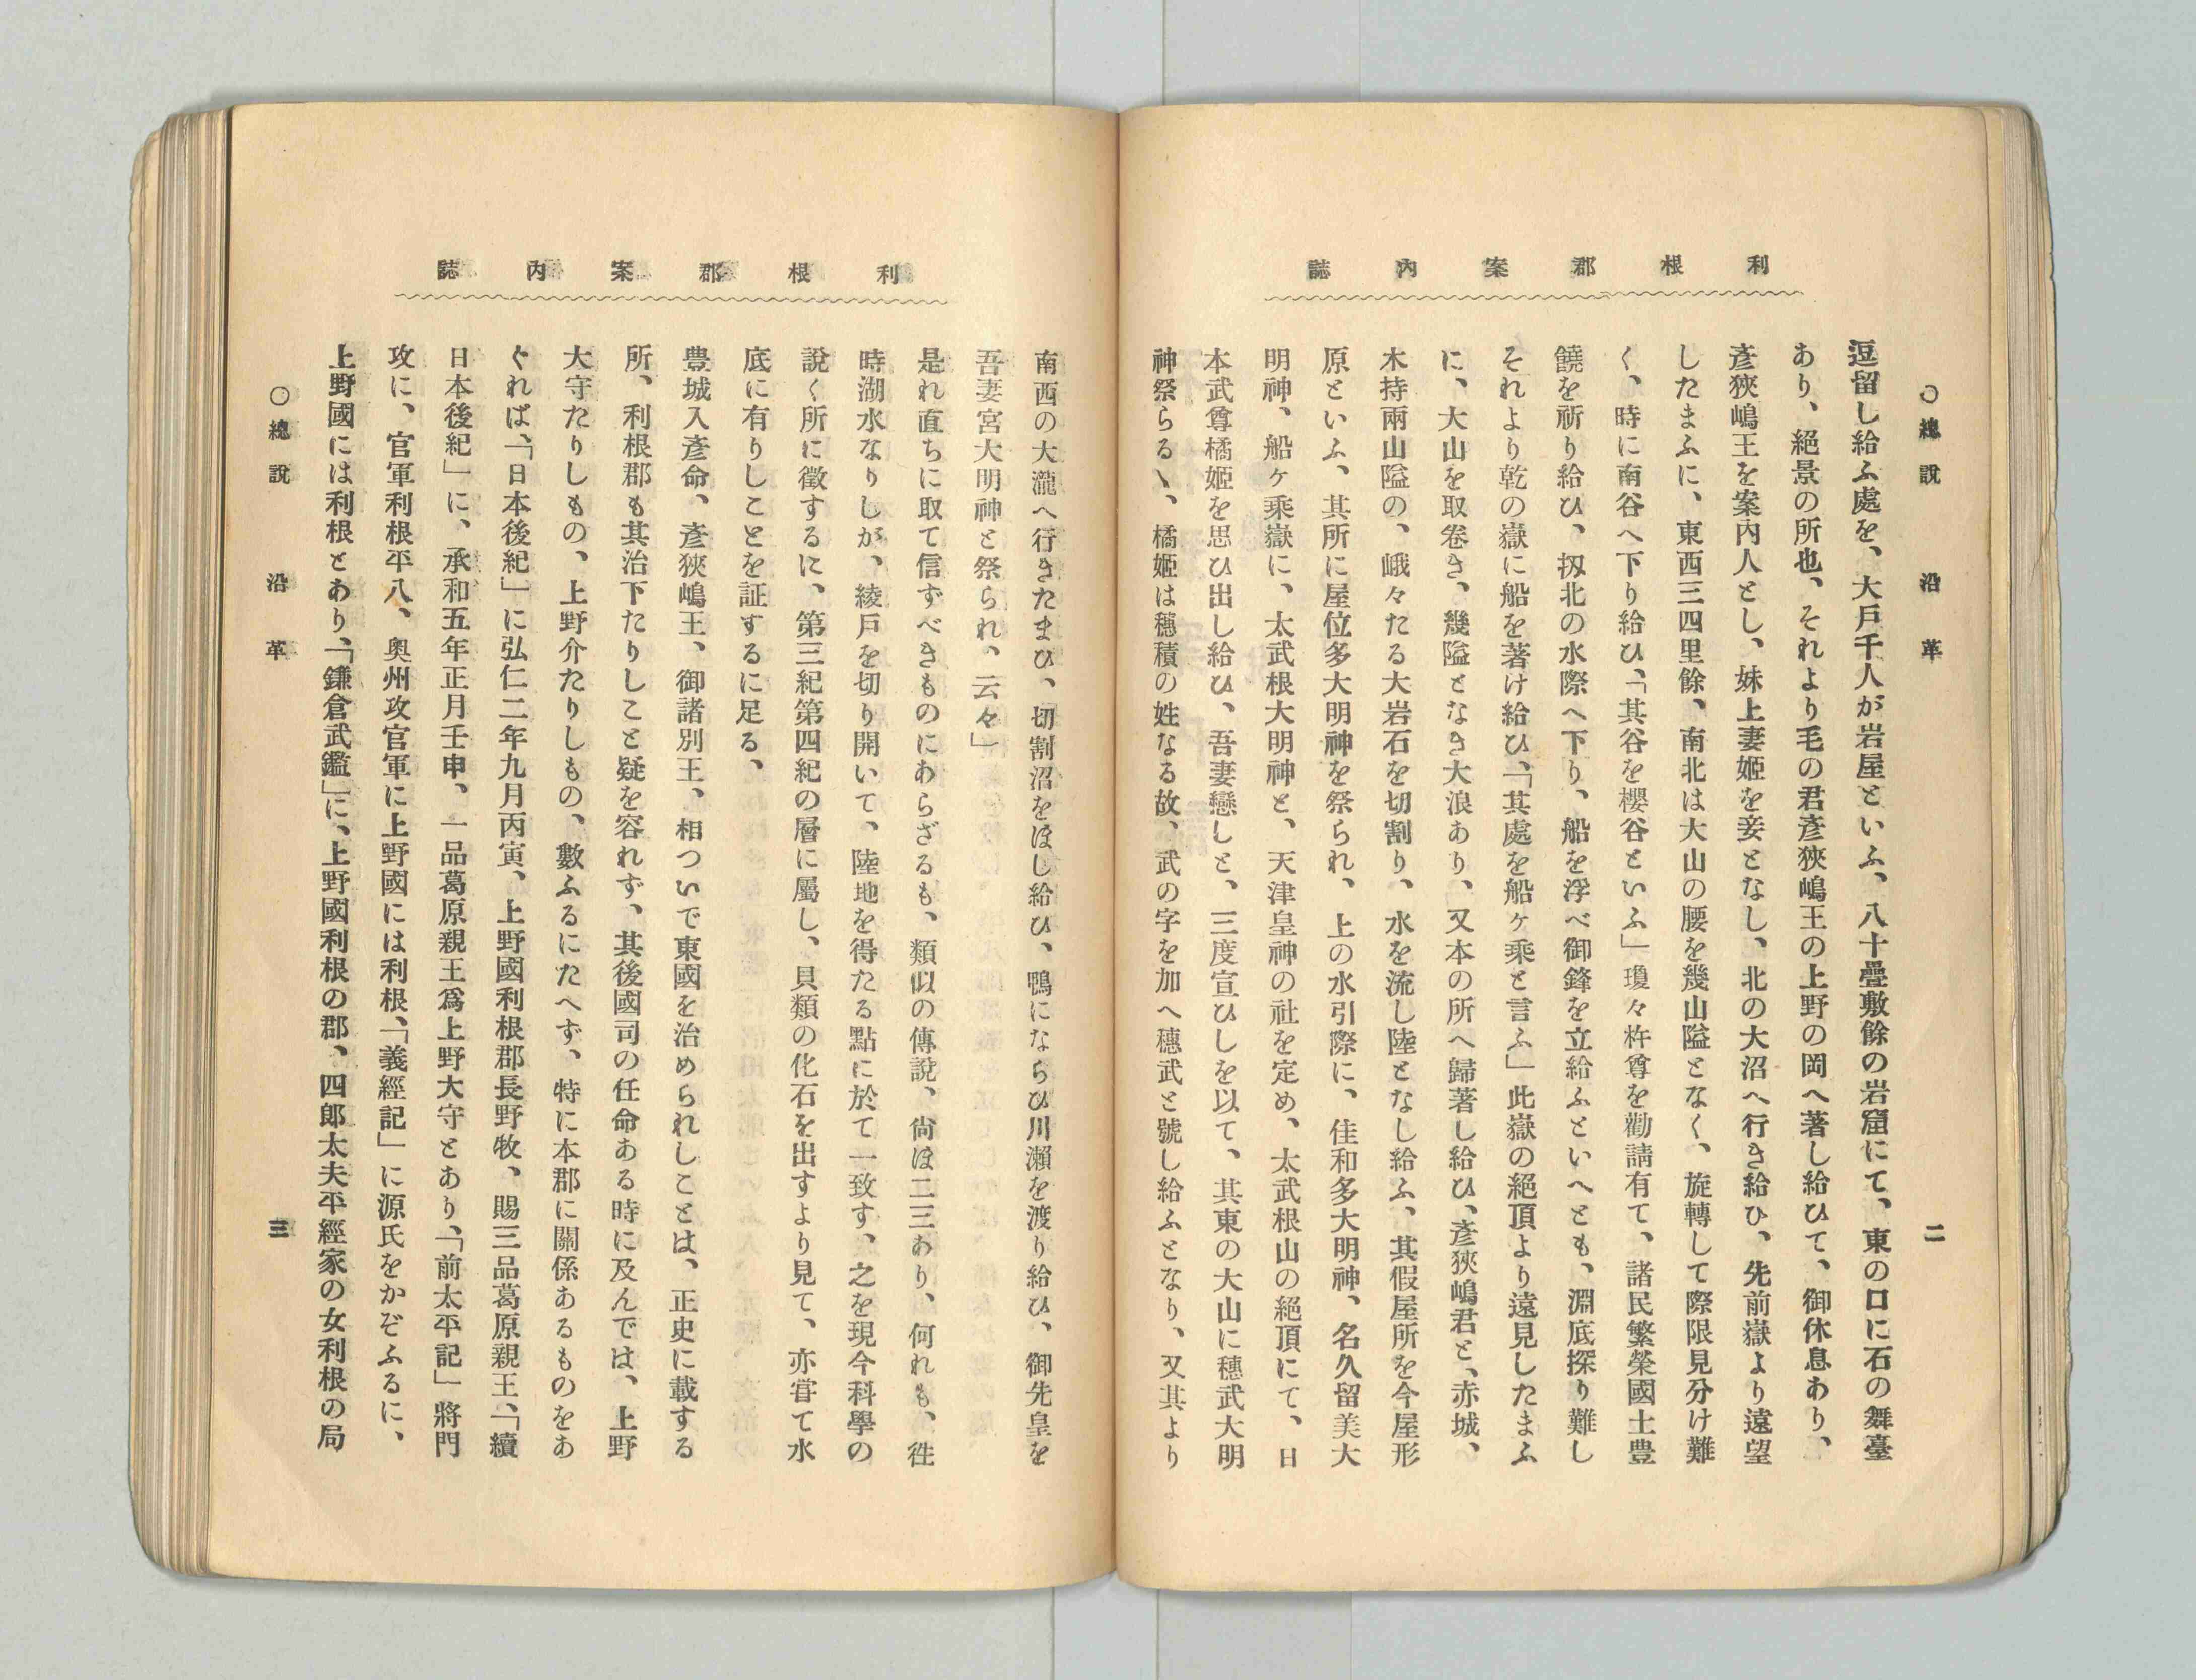 利根郡案內誌
○總說 沿革 二
逗留し給ふ處を、大戶千人が岩屋といふ、八十疊敷餘の岩窟にて、東の口に石の舞臺
あり、絕景の所也、それより毛の君彥狹嶋王の上野の岡へ著し給ひて、御休息あり、
彥狹嶋王を案內人とし、妹上妻姬を妾となし、北の大沼へ行き給ひ、先前嶽より遠望
したまふに、東西三四里餘、南北は大山の腰を幾山隘となく、旋轉して際限見分け難
く、時に南谷へ下り給ひ、「其谷を櫻谷といふ」瓊々杵尊を勸請有て、諸民繁榮國土豊
饒を祈り給ひ、扨北の水際へ下り、船を浮べ御鋒を立給ふといへとも、淵底探り難し
それより乾の嶽に船を著け給ひ、「其處を船ヶ乘と言ふ」此嶽の絕頂より遠見したまふ
に、大山を取卷き、幾隘となき大浪あり、「又本の所へ歸著し給ひ、彥狹嶋君と、赤城、
木持兩山隘の、峨々たる大岩石を切割り、水を流し陸となし給ふ、其假屋所を今屋形
原といふ、其所に屋位多大明神を祭られ、上の水引際に、佳和多大明神、名久留美大
明神、船ヶ乘嶽に、太武根大明神と、天津皇神の社を定め、太武根山の絕頂にて、日
本武尊橘姬を思ひ出し給ひ、吾妻戀しと、三度宣ひしを以て、其東の大山に穗武大明
神祭らるヽ、橘姬は穗積の姓なる故、武の字を加へ穗武と號し給ふとなり、又其より
利根郡案內誌
南西の大瀧へ行きたまひ、切割沼をほし給ひ、鴨にならひ川瀨を渡り給ひ、御先皇を
吾妻宮大明神と祭られ、云々」
是れ直ちに取て信ずべきものにあらざるも、類似の傳說、尙ほ二三あり、何れも、徃
時湖水なりしが、綾戶を切り開いて、陸地を得たる點に於て一致す、之を現今科學の
說く所に徵するに、第三紀第四紀の層に屬し、貝類の化石を出すより見て、亦甞て水
底に有りしことを証するに足る、
豊城入彥命、彥狹嶋王、御諸別王、相ついで東國を治められしことは、正史に載する
所、利根郡も其治下たりしこと疑を容れず、其後國司の任命ある時に及んでは、上野
大守たりしもの、上野介たりしもの、數ふるにたへず、特に本郡に關係あるものをあ
ぐれば、「日本後紀」に弘仁二年九月丙寅、上野國利根郡長野牧、賜三品葛原親王、「續
日本後紀」に、承和五年正月壬申、一品葛原親王爲上野大守とあり、「前太平記」將門
攻に、官軍利根平八、奧州攻官軍に上野國には利根、「義經記」に源氏をかぞふるに、
上野國には利根とあり、「鎌倉武鑑」に、上野國利根の郡、四郎太夫平經家の女利根の局
○總說 沿革 三